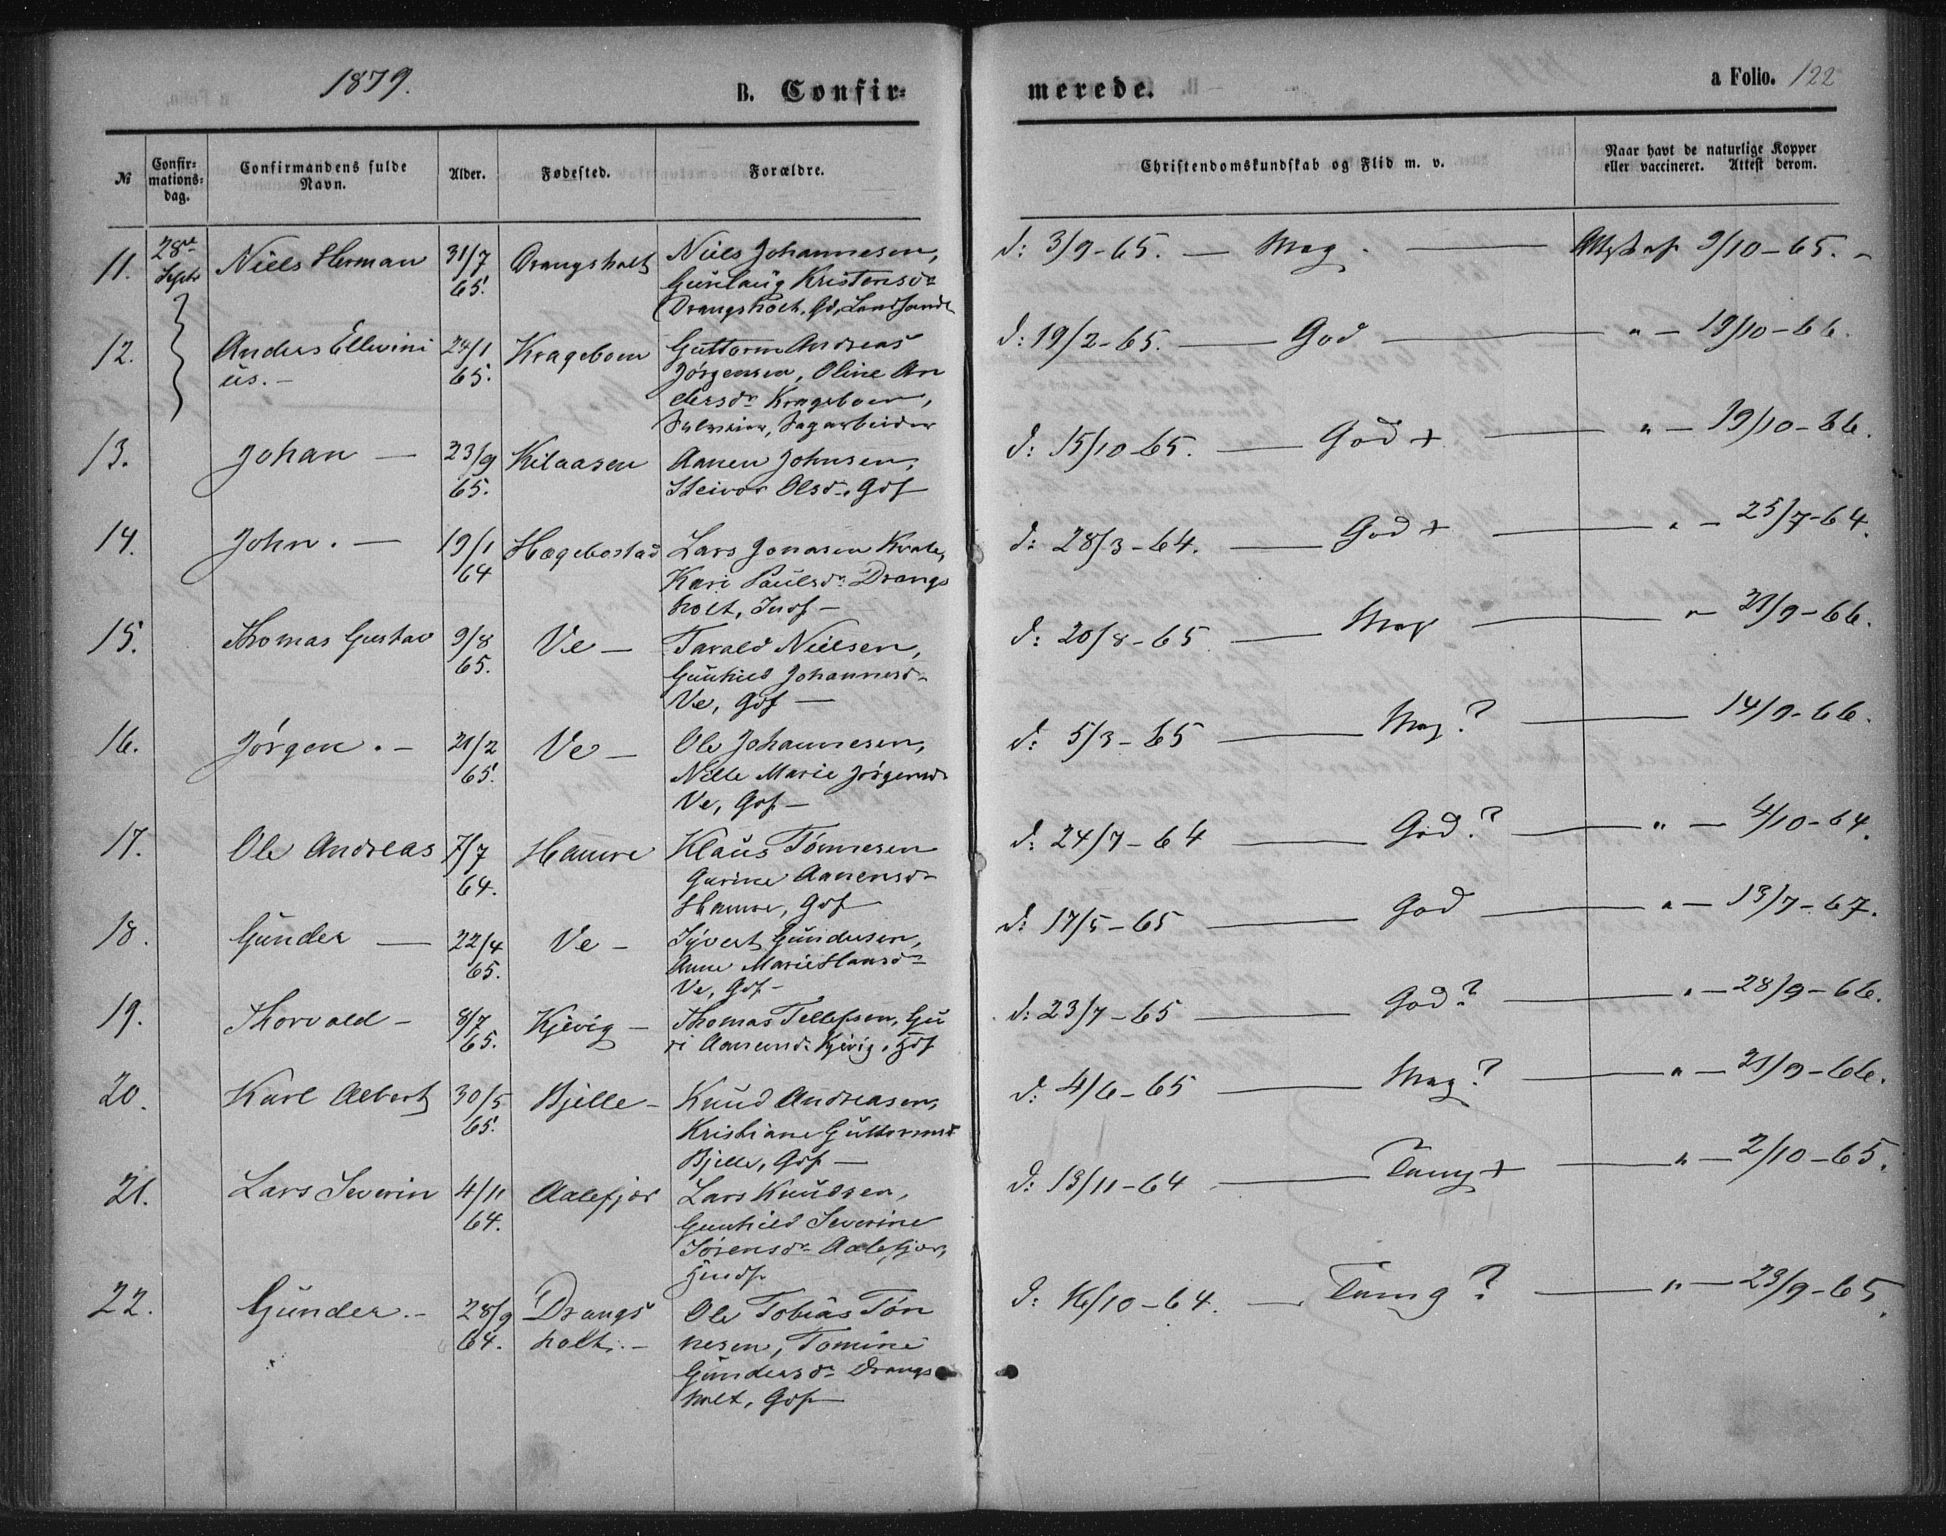 1879.
B. Confir-
merede.
a Folio. 122
№
Confir-
mations-
dag.
Confirmandens fulde
Navn.
Alder.
Fødested.
Forældre.
Christendomskundskab og Flid m. v.
Naar havt de naturlige Kopper
eller vaccineret. Attest derom.
11. 28de Niels Herman 31/7 Drangsholt Niels Johannesen, d: 3/9-65. — Mag. — Attest af 9/10-65. -
Septr 65. Gunlaug Kristensd.
Drangsholt, Gd,
12. Anders Ellevini 24/1 Krageboen Guttorm Andreas d: 19/2-65. — God — " - 19/10-66.
us. - 65. Jørgensen, Oline An
dersdr Krageboen,
Sagarbeider
13. Johan — 23/9 Kilaasen Aanen Johnsen, d: 15/10-65. — God + — " - 19/10-66.
65. Steivor Olsd. Gdf
14. John. — 19/1 Hægebostad Lars Jonasen d: 28/3-64. — God + — " - 25/7-64.
64 Kari Paulsdr Drangs
holt, Indf -
15. Thomas Gustav 9/8 Ve - Tarald Nielsen, d: 20/8-65 — Mag — " - 21/9-66.
65. Gunhild Johannesd.
Ve, Gdf —
16. Jørgen. - 21/2 Ve - Ole Johannesen, d: 5/3-65 — Mag? — 14/9-66.
65. Nille Marie Jørgensd.
Ve, Gdf -
17. Ole Andreas 7/7 Hamre Klaus Tønnesen d: 24/7-64 — God? — " - 4/10-64.
64. Gurine Aanensd.
Hamre, Gdf
18. Gunder — 22/4 Ve - Syvert Gundersen, d: 17/5-65 — God — " - 13/7-67.
65. Anne Marie Hansd.
Ve, Gdf -
19. Thorvald - 8/7 Kjevig - Thomas Tellefsen, Gu d: 23/7-65 — God? — " - 28/9-66.
65. ri Aanensd. Kjevig, Gdf
20. Karl Albert 30/5 Bjelle - Knud Andreasen, d: 4/6-65 — Mag? — " - 21/9-66.
65. Kristiane Guttormsd.
Bjelle, Gdf —
21. Lars Severin 4/11 Aalefjær Lars Knudsen, d: 13/11-64 — Tamg + — " - 2/10-65.
64. Gunhild Severine
Sørensdr Aalefjær,
22. Gunder. - 28/9 Drangs Ole Tobias Tøn d: 16/10-64. — Tamg? — " - 23/9-65.
64. holt. - nesen, Tomine
Gundersdr Drangs
holt, Gdf